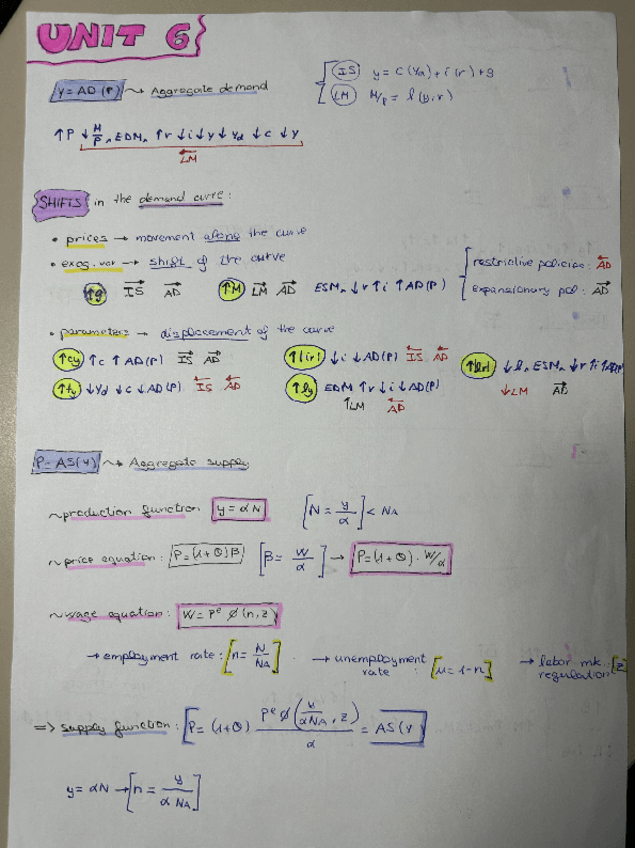 UNIT 6
y = AD (P) ~> Aggregate demand
{ (IS) y = c (yd) + i (r) + g
(LM) M/P = l (y, r)
↑P ↓M/P, EDM, ↑r ↓i ↓y ↓yd ↓c ↓y
←LM
SHIFTS in the demand curve:
• prices → movement along the curve
• exog. var → shift of the curve
↑g →IS →AD ↑M →LM →AD ESM, ↓r ↑i ↑AD(P)
[ restrictive policies: ←AD
expansionary pol: →AD
• parameters → displacement of the curve
↑cy ↑c ↑AD(P) →IS →AD ↑|ir| ↓i ↓AD(P) ←IS ←AD ↑|lr| ↓l, ESM, ↓r ↑i ↑AD(P)
↓LM →AD
↑ty ↓yd ↓c ↓AD(P) ←IS ←AD ↑ly EDM ↑r ↓i ↓AD(P)
↑LM ←AD
P = AS(y) ~> Aggregate supply
~production function y = αN [N = y/α] < NA
~price equation: P = (1+θ)β [β = W/α] → P = (1+θ) · W/α
~wage equation: W = Pᵉ ∅ (n, z)
→ employment rate: [n = N/NA] → unemployment rate: [u = 1-n] → labor mk. regulation [z]
=> supply function: [P = (1+θ) Pᵉ ∅ (y/αNA, z)/α = AS(y
y = αN → [n = y/α NA]